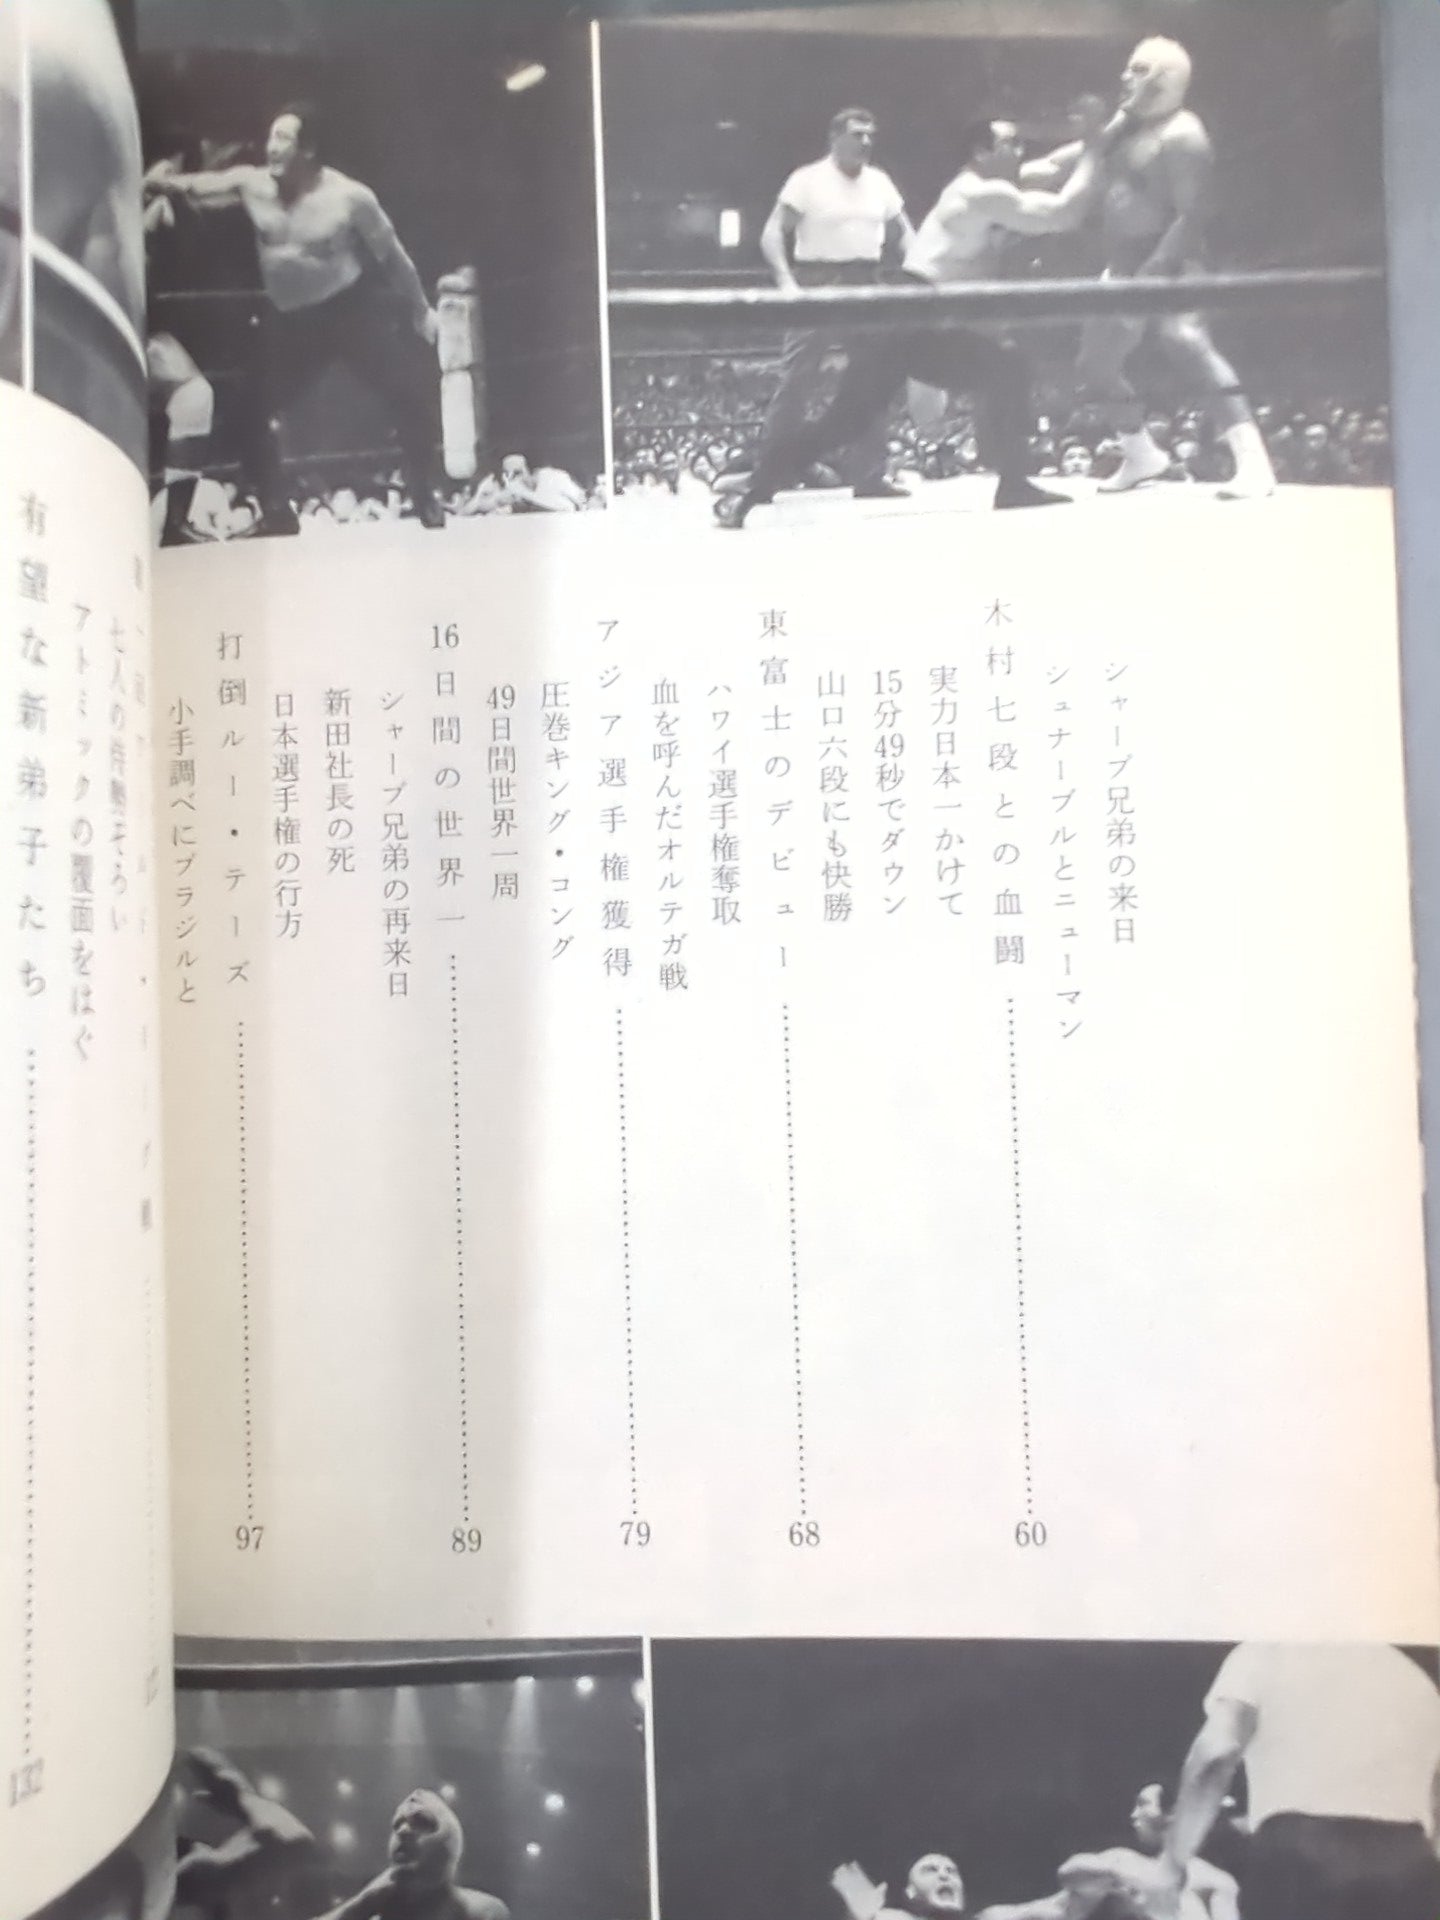 シャープ兄弟の来日
シュナーブルとニューマン
木村七段との血闘……60
実力日本一かけて
15分49秒でダウン
山口六段にも快勝
東富士のデビュー……68
ハワイ選手権奪取
血を呼んだオルテガ戦
アジア選手権獲得……79
圧巻キング・コング
49日間世界一周
16日間の世界一……89
シャープ兄弟の再来日
新田社長の死
日本選手権の行方
打倒ルー・テーズ……97
小手調べにブラジルと
アトミックの覆面をはぐ
有望な新弟子たち……132